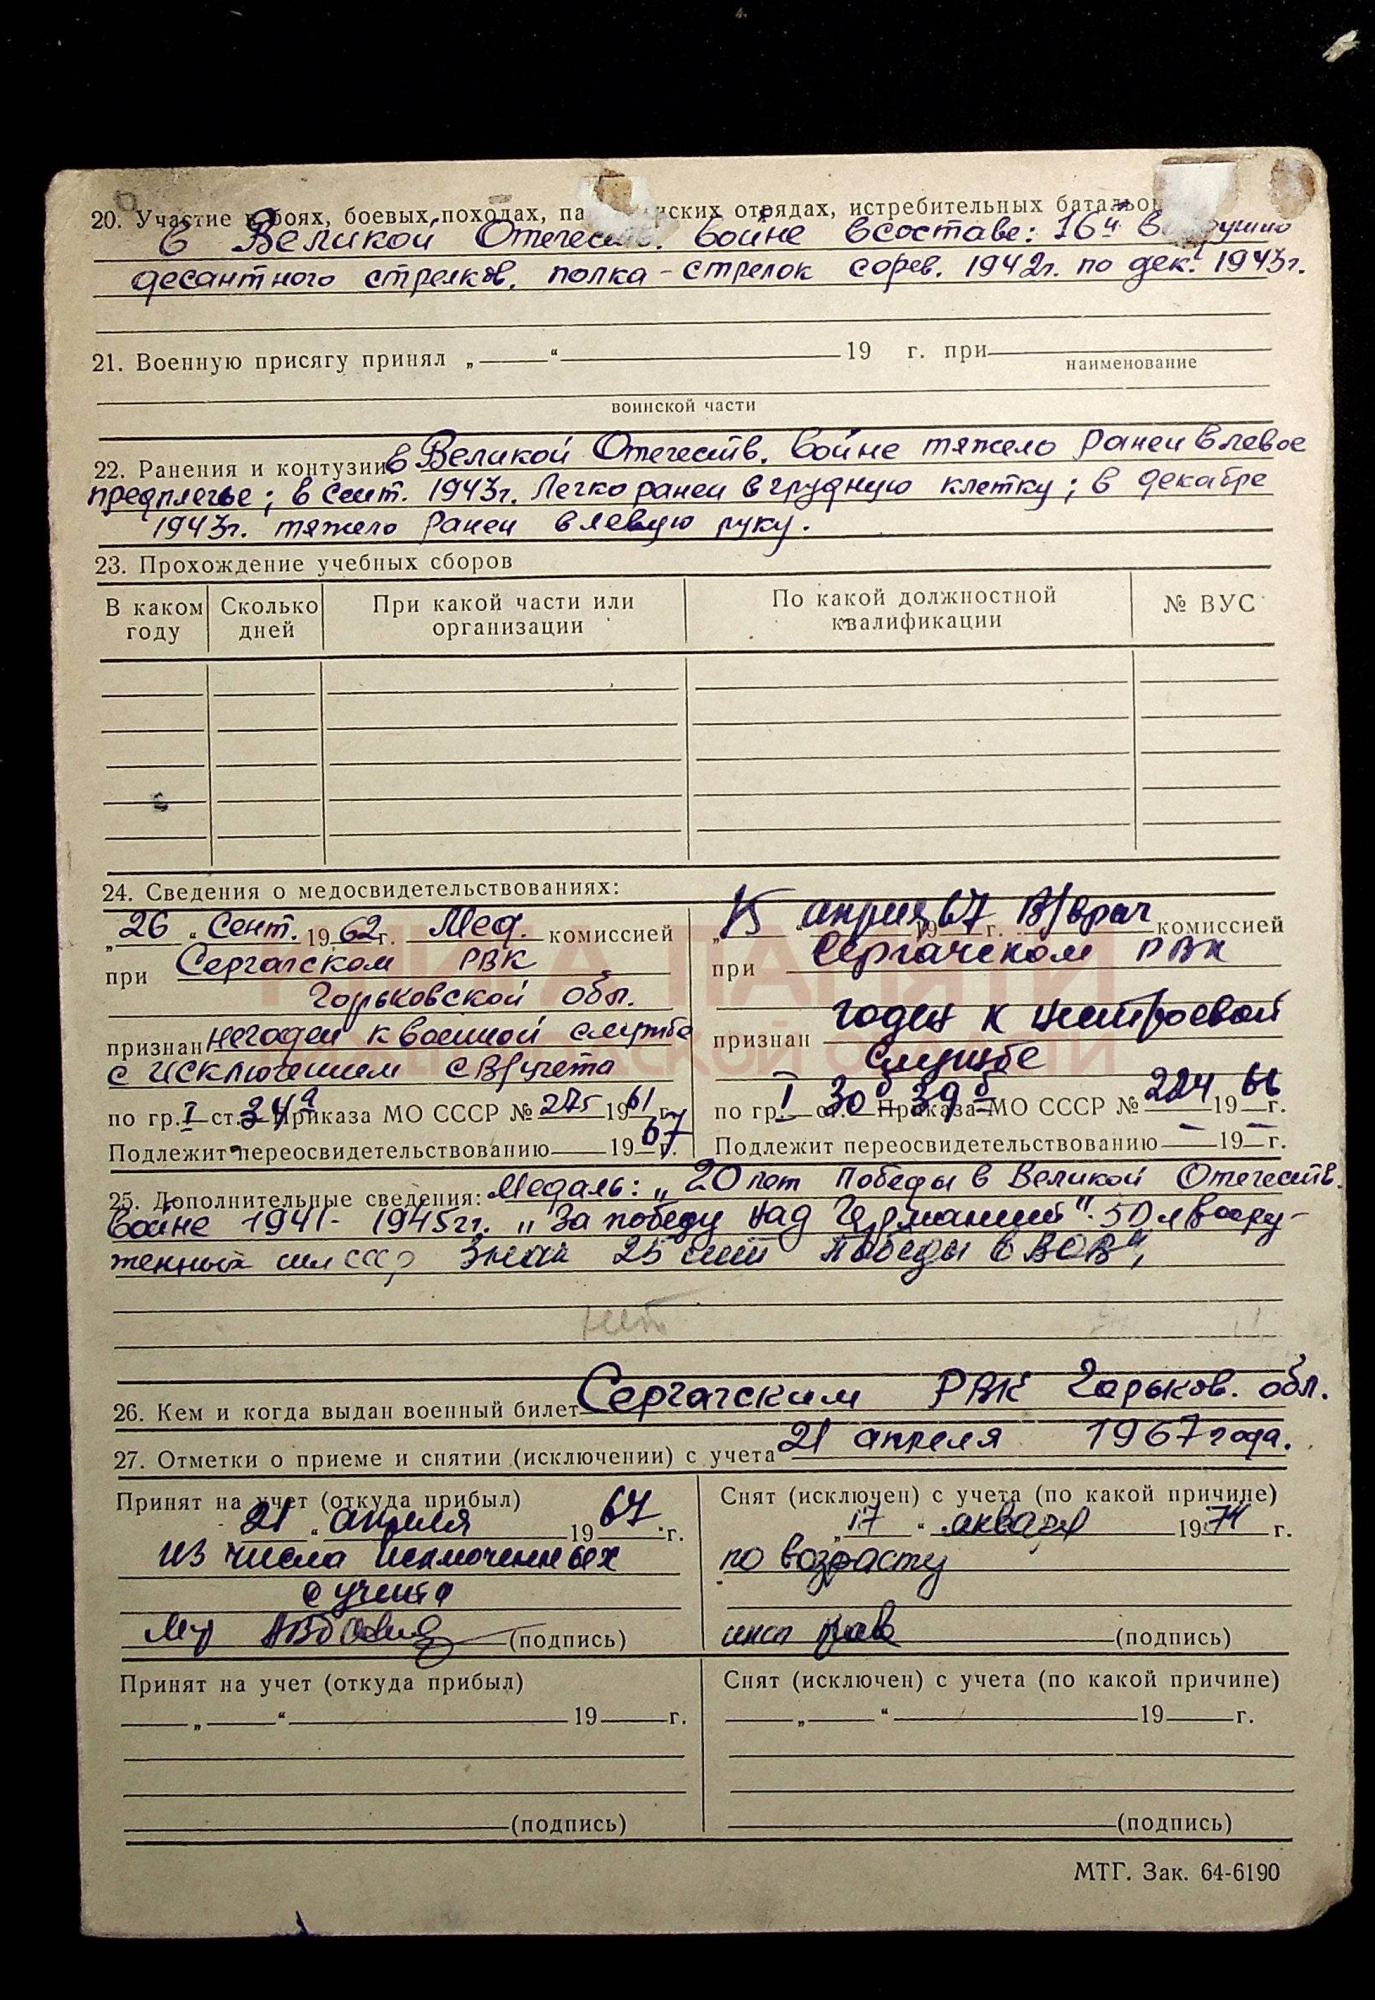 20. Участие в боях, боевых походах, па нских отрядах, истребительных баталь
в Великой Отечеств. войне в составе: 16й В душно
десантного стрелков. полка - стрелок с 1942г. по дек. 1943г.
21. Военную присягу принял „ “ 19 г. при
наименование
воинской части
22. Ранения и контузии в Великой Отечеств. войне тяжело ранен в левое
предплечье; в сент. 1943г. Легко ранен в грудную клетку; в декабре
1943г. тяжело ранен в левую руку.
23. Прохождение учебных сборов
В каком году Сколько дней При какой части или организации По какой должностной квалификации № ВУС
24. Сведения о медосвидетельствованиях:
„26 “ Сент. 1962г. Мед. комиссией
при Сергачском РВК
Горьковской обл.
признан негоден к военной службе
с исключением с В/учета
по гр. I ст. 34а Приказа МО СССР № 275 1961 г.
Подлежит переосвидетельствованию 1967г.
„15 апреля 1967 г. В/врач комиссией
при Сергачском РВК
признан годен к нестроевой
службе
по гр. I ст. 30б 39б Приказа МО СССР № 224 1966г.
Подлежит переосвидетельствованию — 19 — г.
25. Дополнительные сведения: Медаль: „20 лет Победы в Великой Отечеств.
войне 1941- 1945гг. „За победу над Германией". 50 л воору-
женных сил СССР Знак 25 лет Победы в ВОВ",
нет
26. Кем и когда выдан военный билет Сергачским РВК Горьков. обл.
21 апреля 1967 года.
27. Отметки о приеме и снятии (исключении) с учета
Принят на учет (откуда прибыл)
21 „ апреля 1967 г.
из числа исключенных
с учета
(подпись)
Снят (исключен) с учета (по какой причине)
„17 “ января 1974 г.
по возрасту
(подпись)
Принят на учет (откуда прибыл)
„ “ 19 г.
(подпись)
Снят (исключен) с учета (по какой причине)
„ “ 19 г.
(подпись)
МТГ. Зак. 64-6190
КНИГА ПАМЯТИ
НИЖЕГОРОДСКОЙ ОБЛАСТИ